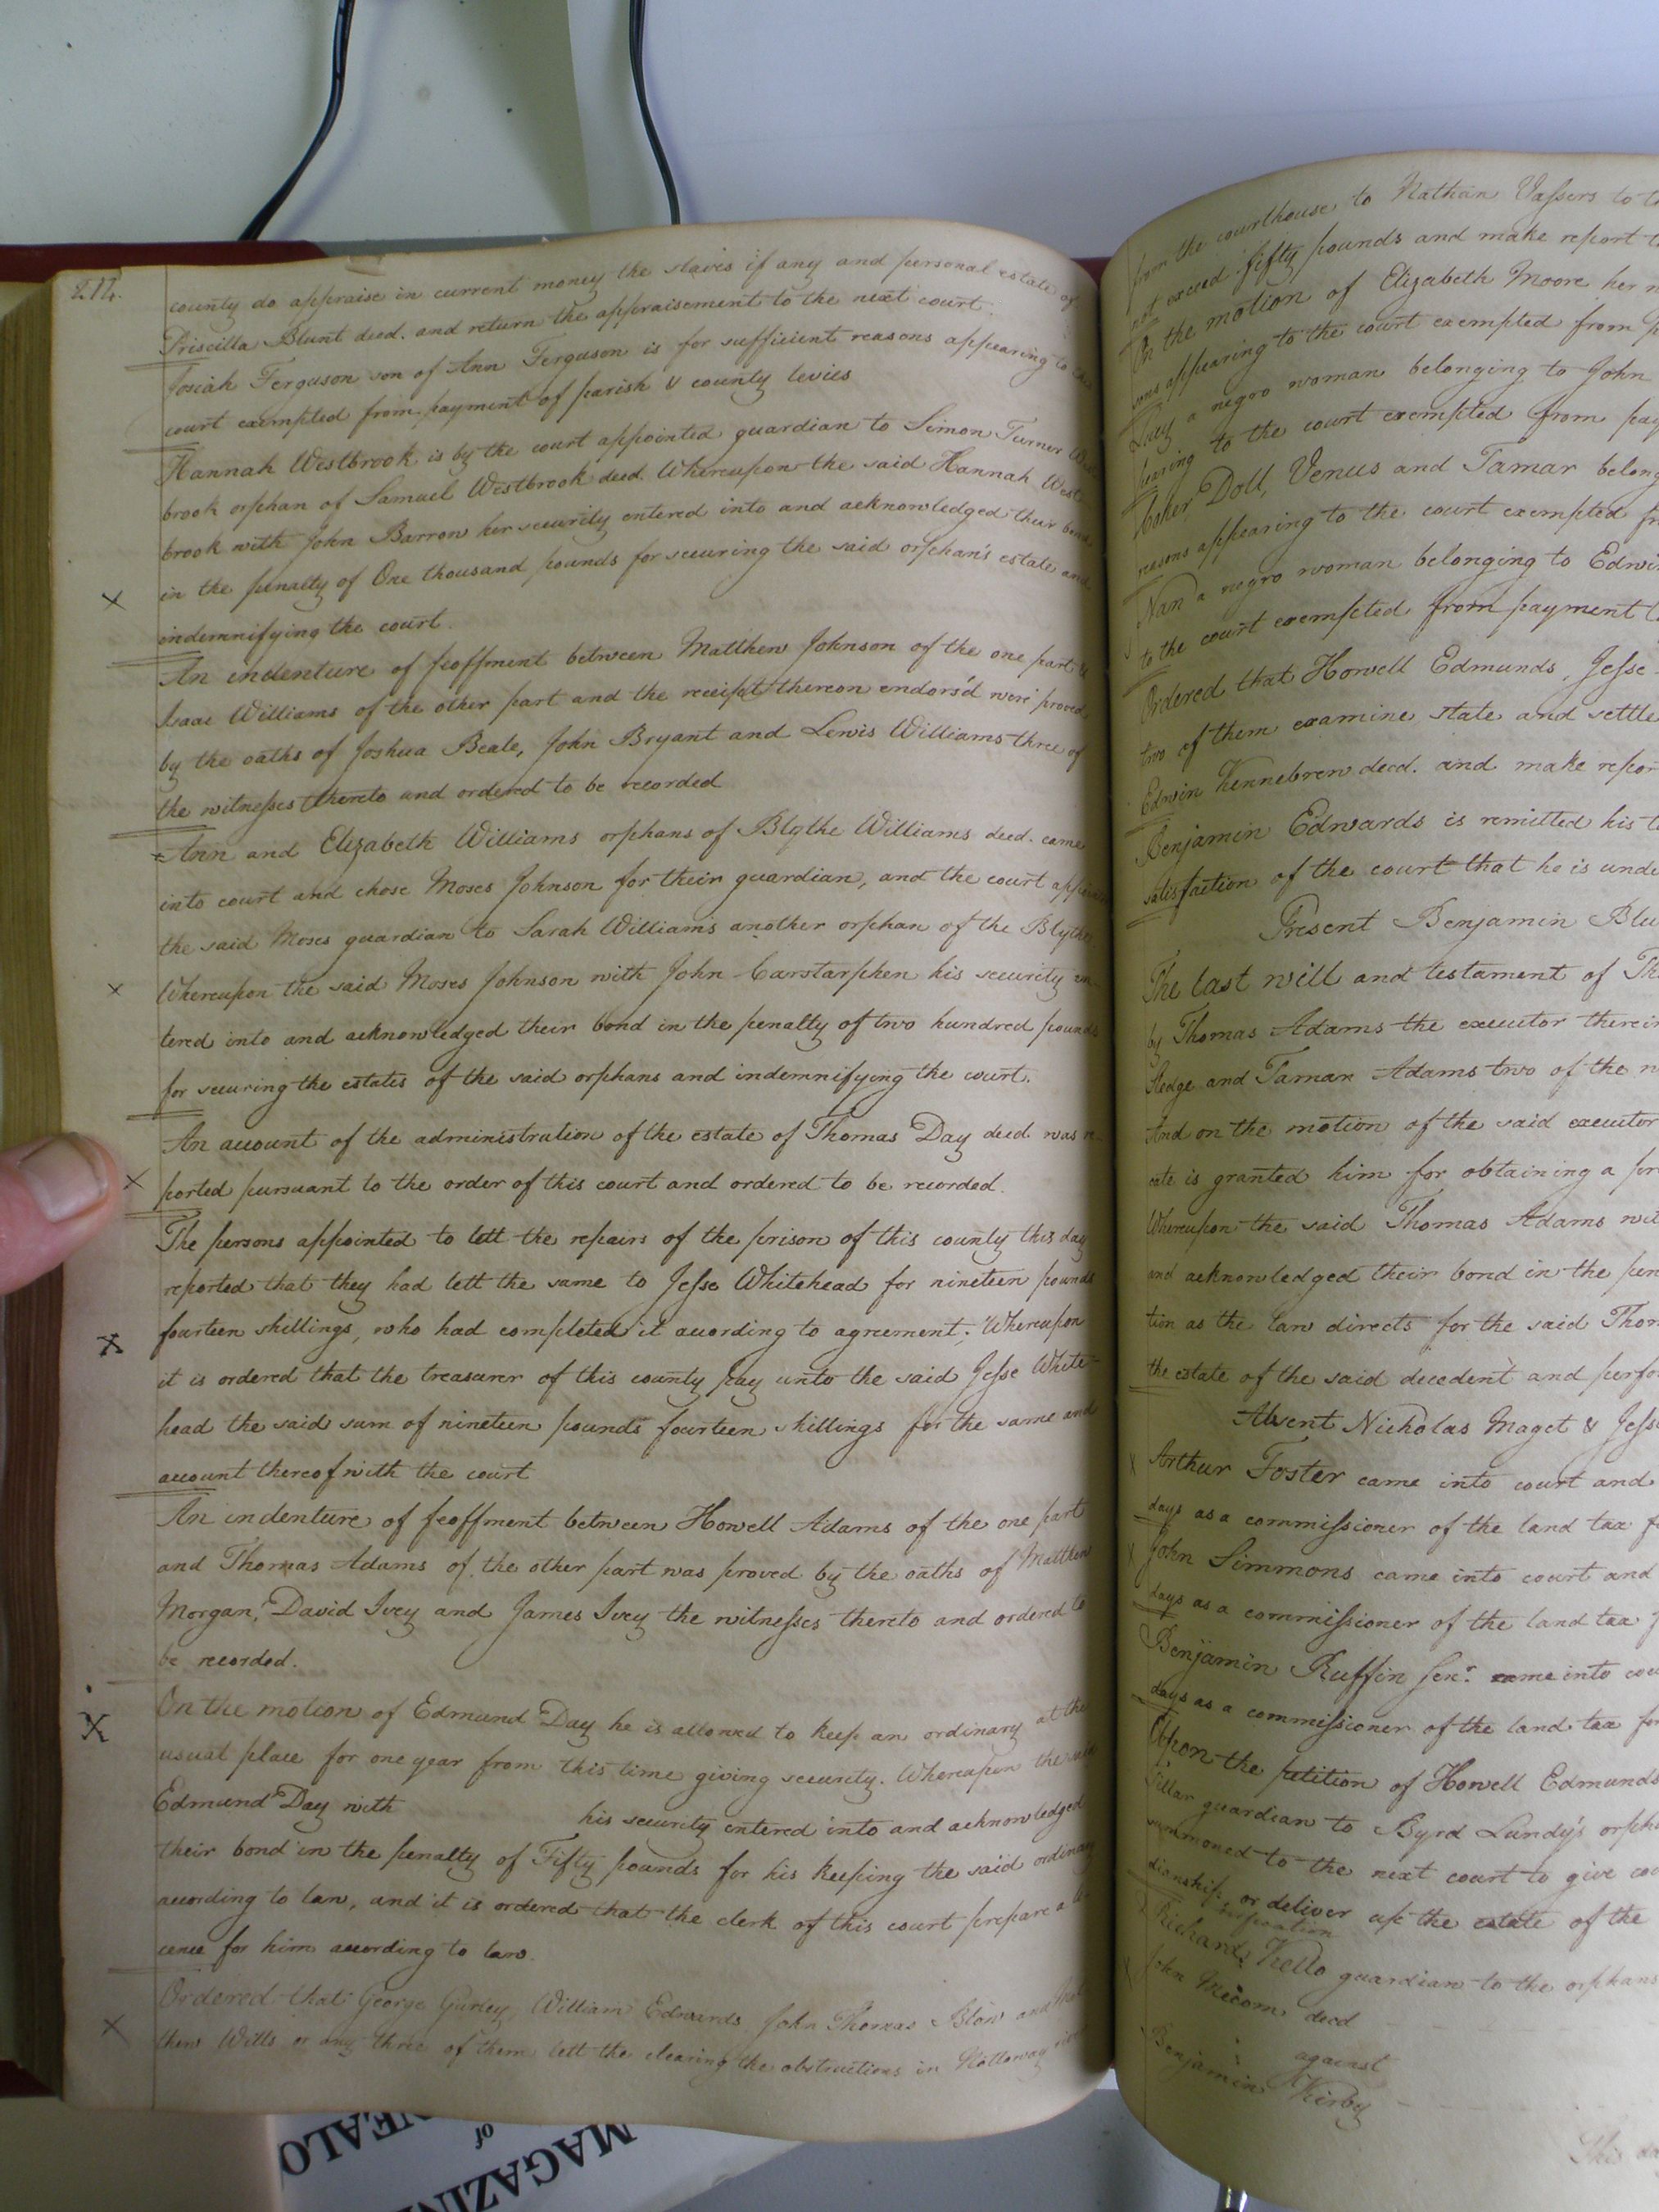 212.
county do appraise in current money the slaves if any and personal estate of
Priscilla Blunt deed. and return the appraisement to the next court.
Josiah Ferguson son of Ann Ferguson is for sufficient reasons appearing to the
court exempted from payment of parish & county levies
Hannah Westbrook is by the court appointed guardian to Simon Turner West
brook orphan of Samuel Westbrook deed. Whereupon the said Hannah West
brook with John Barrow her security entered into and acknowledged their bond
in the penalty of One thousand pounds for securing the said orphan's estate and
indemnifying the court.
An indenture of feoffment between Matthew Johnson of the one part &
Isaac Williams of the other part and the receipt thereon endors'd were proved
by the oaths of Joshua Beale, John Bryant and Lewis Williams three of
the witnesses thereto and ordered to be recorded
Ann and Elizabeth Williams orphans of Blythe Williams deed. came
into court and chose Moses Johnson for their guardian, and the court appoints
the said Moses guardian to Sarah Williams another orphan of the Blythe
Whereupon the said Moses Johnson with John Carstarphen his security en-
tered into and acknowledged their bond in the penalty of two hundred pounds
for securing the estates of the said orphans and indemnifying the court.
An account of the administration of the estate of Thomas Day deed. was re-
ported pursuant to the order of this court and ordered to be recorded.
The persons appointed to lett the repairs of the prison of this county this day
reported that they had lett the same to Jesse Whitehead for nineteen pounds
fourteen shillings, who had completed it according to agreement; Whereupon
it is ordered that the treasurer of this county pay unto the said Jesse White-
head the said sum of nineteen pounds fourteen shillings for the same and
account thereof with the court
An indenture of feoffment between Howell Adams of the one part
and Thomas Adams of the other part was proved by the oaths of Matthew
Morgan, David Ivey and James Ivey the witnesses thereto and ordered to
be recorded.
On the motion of Edmund Day he is allowed to keep an ordinary at the
usual place for one year from this time giving security. Whereupon the said
Edmund Day with his security entered into and acknowledged
their bond in the penalty of Fifty pounds for his keeping the said ordinary
according to law, and it is ordered that the clerk of this court prepare a li-
cence for him according to law.
Ordered that George Gurley, William Edwards, John Thomas Blow and Mat
thew Wills or any three of them lett the clearing the obstructions in Nottoway river
from the courthouse to Nathan Vassers to t
not exceed fifty pounds and make report t
On the motion of Elizabeth Moore her n
sons appearing to the court exempted from p
Lucy a negro woman belonging to John
pearing to the court exempted from pay
Doll, Venus and Tamar belong
reasons appearing to the court exempted fr
Nan a negro woman belonging to Edwi
to the court exempted from payment
Ordered that Howell Edmunds, Jesse
two of them examine, state and settle
Edwin Kennebrew deed. and make repor
Benjamin Edwards is remitted his
satisfaction of the court that he is unde
Present Benjamin Blu
The last will and testament of Th
by Thomas Adams the executor therein
Sledge and Tamar Adams two of the
And on the motion of the said executor
cate is granted him for obtaining a pr
Whereupon the said Thomas Adams wit
and acknowledged their bond in the pen
tion as the law directs for the said Thom
the estate of the said decedent and perfo
Absent Nicholas Maget & Jess
Arthur Foster came into court and
days as a commissioner of the land tax f
John Simmons came into court and
days as a commissioner of the land tax f
Benjamin Ruffin Senr. came into cou
days as a commissioner of the land tax for
Upon the petition of Howell Edmunds
guardian to Byrd Lundy's orpha
summoned to the next court to give cou
dianship, or deliver up the estate of the
Richard Kello guardian to the orphans
John Mecom deed
against
Benjamin Kirby
This da
MAGAZIN
of
NEALO